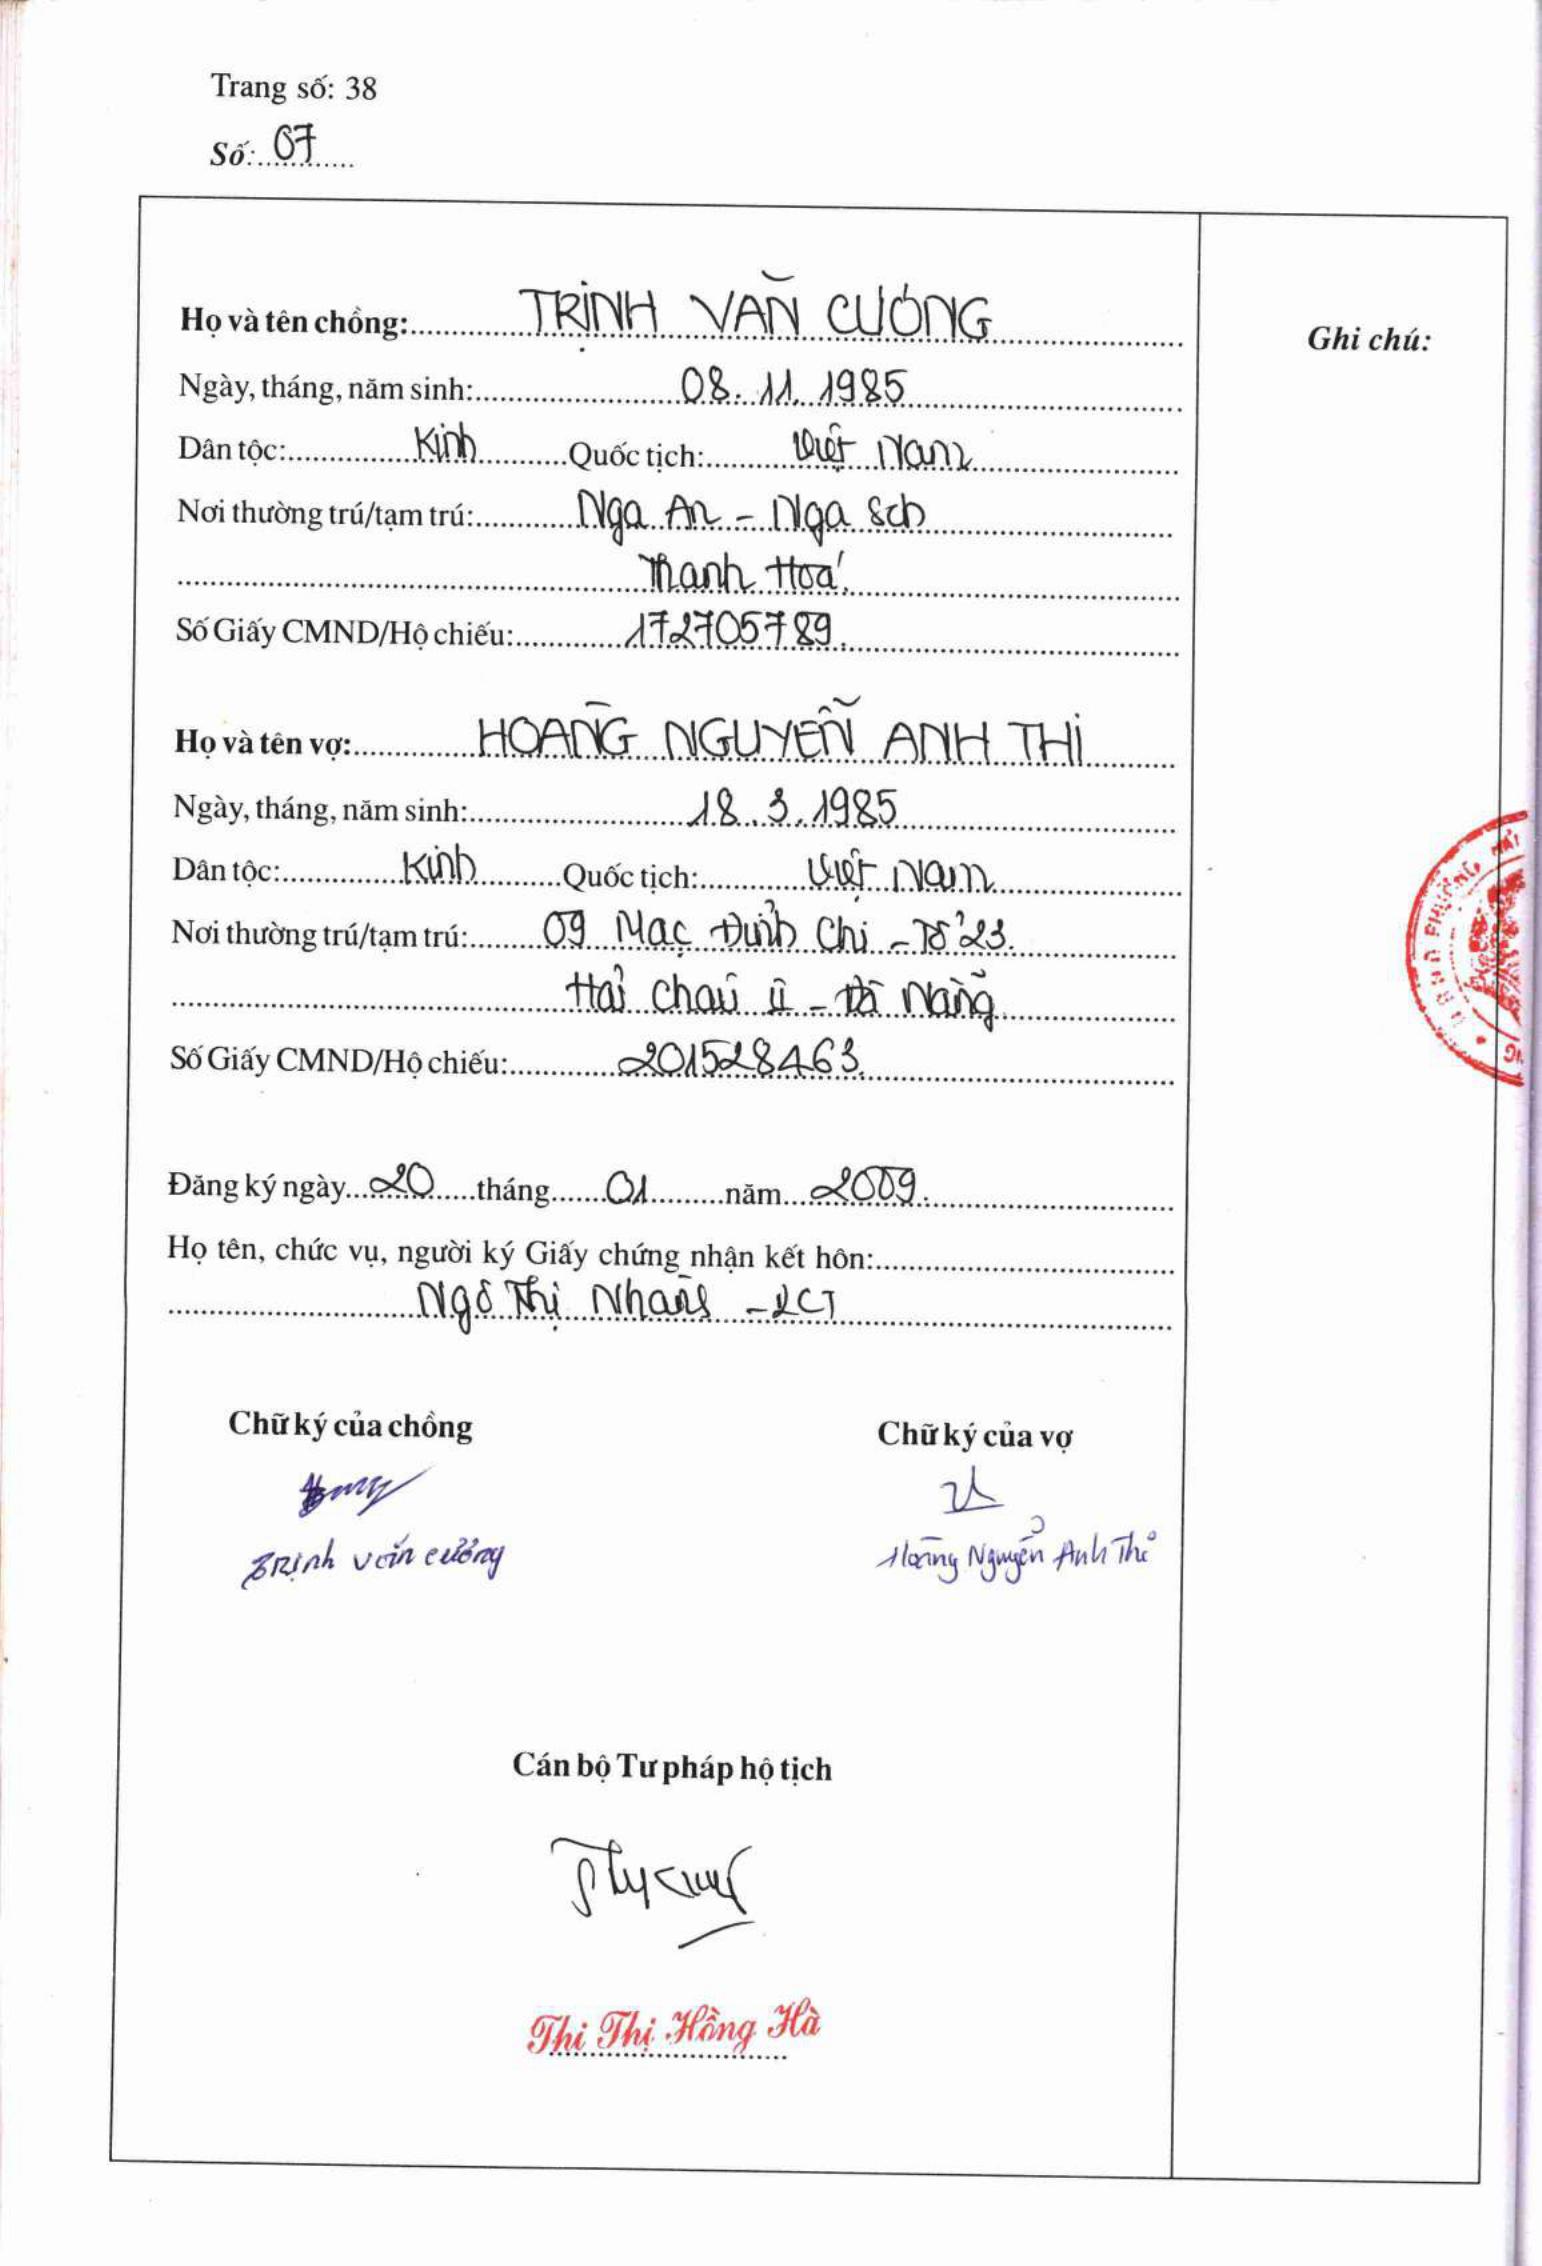 Trang số: 38
Số: 07
Họ và tên chồng: TRỊNH VĂN CƯỜNG
Ghi chú:
Ngày, tháng, năm sinh: 08.11.1985
Dân tộc: Kinh Quốc tịch: Việt Nam
Nơi thường trú/tạm trú: Nga An - Nga Sơn
Thanh Hoá.
Số Giấy CMND/Hộ chiếu: 172705789.
Họ và tên vợ: HOÀNG NGUYỄN ANH THI
Ngày, tháng, năm sinh: 18.3.1985
Dân tộc: Kinh Quốc tịch: Việt Nam
Nơi thường trú/tạm trú: 09 Mạc Đĩnh Chi - Tổ 23.
Hải Châu II - Đà Nẵng
Số Giấy CMND/Hộ chiếu: 201528463.
Đăng ký ngày 20 tháng 01 năm 2009.
Họ tên, chức vụ, người ký Giấy chứng nhận kết hôn:
Ngô Thị - PCT
Chữ ký của chồng
Chữ ký của vợ
Trịnh Văn Cường
Hoàng Nguyễn Anh Thi
Cán bộ Tư pháp hộ tịch
Thi Thị Hồng Hà
U.B.N.D PHƯỜNG HẢI